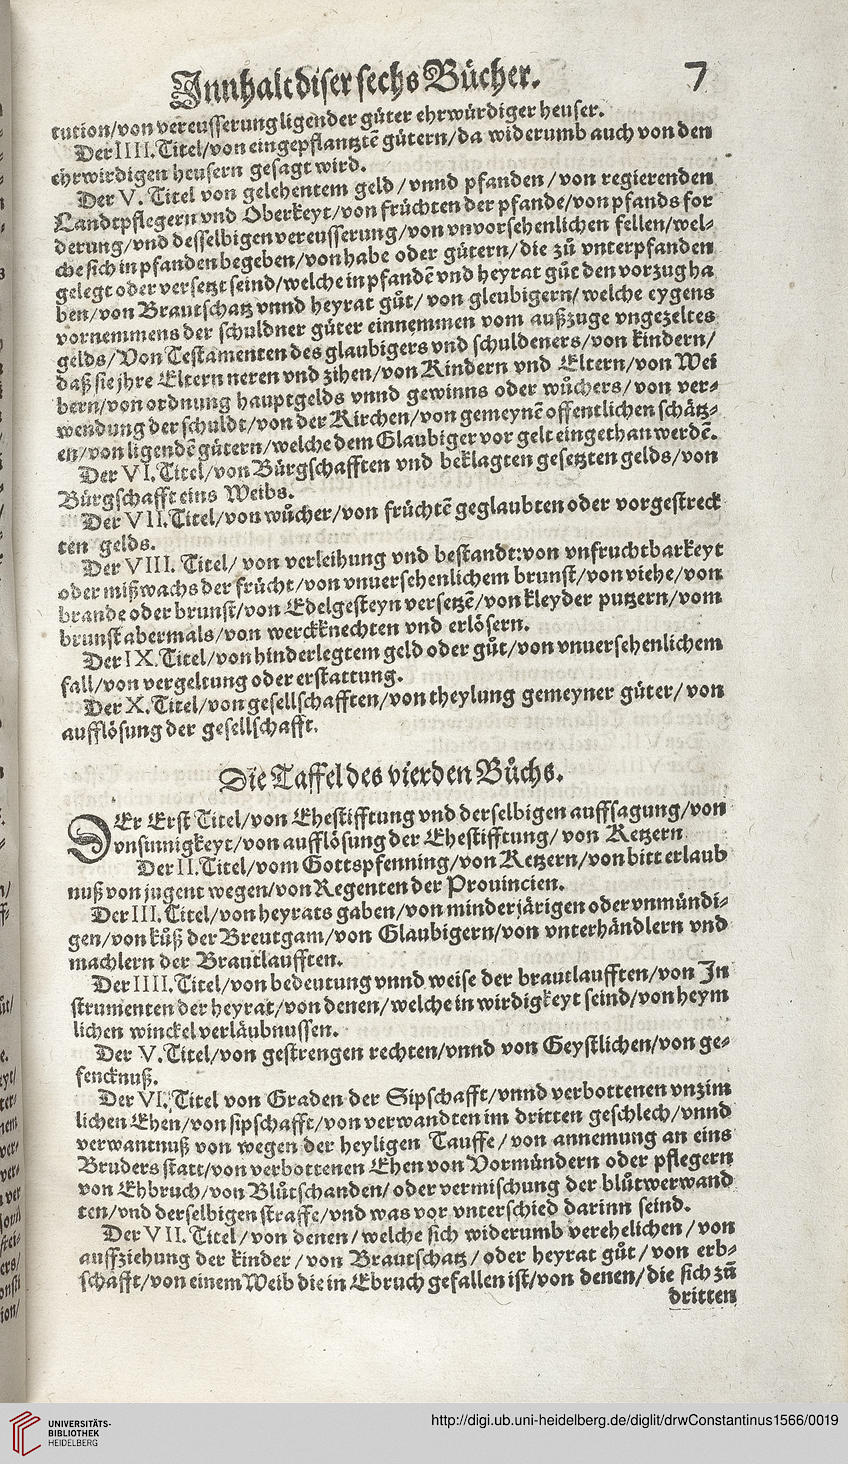 Innhalt diser sechs Bücher. 7
tution/von vereusserung ligender güter ehrwürdiger heuser.
Der IIII. Titel/von eingepflantztē gütern/da widerumb auch von den
ehrwirdigen heusern gesagt wird.
Der V. Titel von gelehentem geld/vnnd pfanden/von regierenden
Landtpflegern vnd Oberkeyt/von früchten der pfande/von pfands for
derung/vnd desselbigen vereusserung/von vnvorsehenlichen fellen/wel⸗
che sich in pfanden begeben/von habe oder gütern/die zů vnterpfanden
gelegt oder versetzt seind/welche in pfandē vnd heyrat gůt den vorzug ha
ben/von Brautschatz vnnd heyrat gůt/von gleubigern/welche eygens
vornemmens der schuldner güter einnemmen vom außzuge vngezeltes
gelds/Von Testamenten des glaubigers vnd schuldeners/von kindern/
daß sie jhre Eltern neren vnd zihen/von Kindern vnd Eltern/von Wei
bern/von ordnung hauptgelds vnnd gewinns oder wůchers/von ver⸗
wendung der schuldt/von der Kirchen/von gemeynē offentlichen schätz⸗
en/von ligendē gütern/welche dem Glaubiger vor gelt eingethan werdē.
Der VI. Titel/von Bürgschafften vnd beklagten gesetzten gelds/von
Bürgschafft eins Weibs.
Der VII. Titel/von wůcher/von früchtē geglaubten oder vorgestreck
ten gelds.
Der VIII. Titel/von verleihung vnd bestandt:von vnfruchtbarkeyt
oder mißwachs der frücht/von vnuersehenlichem brunst/von viehe/von
brande oder brunst/von Edelgesteyn versetzē/von kleyder putzern/vom
brunst abermals/von werckknechten vnd erlösern.
Der IX. Titel/von hinderlegtem geld oder gůt/von vnuersehenlichem
fall/von vergeltung oder erstattung.
Der X. Titel/von gesellschafften/von theylung gemeyner güter/von
aufflösung der gesellschafft.
Die Taffel des vierden Bůchs.
DEr Erst Titel/von Ehestifftung vnd derselbigen auffsagung/von
vnsinnigkeyt/von aufflösung der Ehestifftung/von Ketzern
Der II. Titel/vom Gottspfenning/von Ketzern/von bitt erlaub
nuß von jugent wegen/von Regenten der Prouincien.
Der III. Titel/von heyrats gaben/von minderjärigen oder vnmündi⸗
gen/von kůß der Breutgam/von Glaubigern/von vnterhändlern vnd
machlern der Brautlaufften.
Der IIII. Titel/von bedeutung vnnd weise der brautlaufften/von In
strumenten der heyrat/von denen/welche in wirdigkeyt seind/von heym
lichen winckel verläubnussen.
Der V. Titel/von gestrengen rechten/vnnd von Geystlichen/von ge⸗
fencknuß.
Der VI. Titel von Graden der Sipschafft/vnnd verbottenen vnzim
lichen Ehen/von sipschafft/von verwandten im dritten geschlech/vnnd
verwantnuß von wegen der heyligen Tauffe/von annemung an eins
Bruders statt/von verbottenen Ehen von Vormündern oder pflegern
von Ehbruch/von Blůtschanden/oder vermischung der blůtverwand
ten/vnd derselbigen straffe/vnd was vor vnterschied darinn seind.
Der VII. Titel/von denen/welche sich widerumb verehelichen/von
auffziehung der kinder/von Brautschatz/oder heyrat gůt/von erb⸗
schafft/von einem Weib die in Ebruch gefallen ist/von denen/die sich zů
dritten
UNIVERSITÄTS-
BIBLIOTHEK
HEIDELBERG
http://digi.ub.uni-heidelberg.de/diglit/drwConstantinus1566/0019